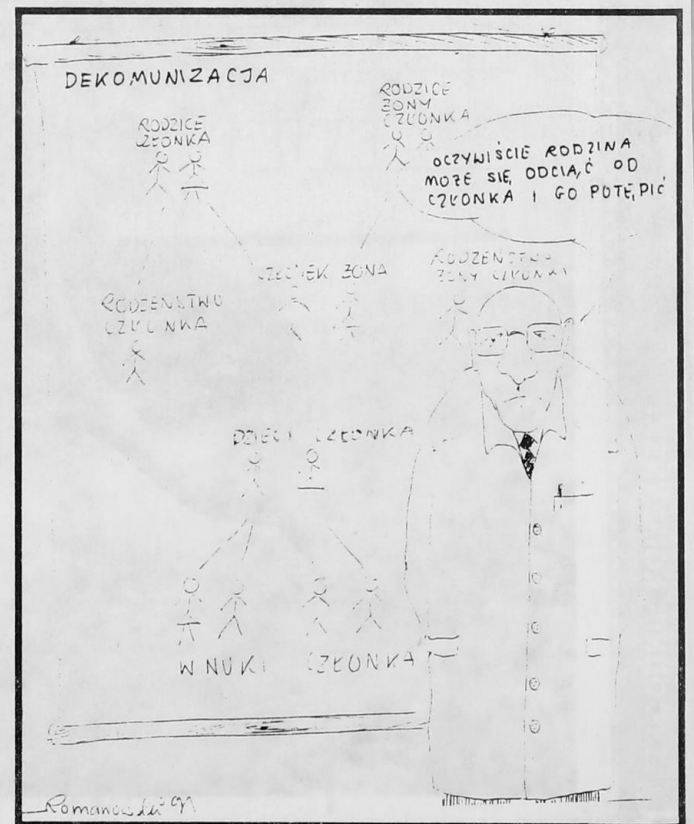 DEKOMUNIZACJA
RODZICE
CZŁONKA
RODZICE
ŻONY
CZŁONKA
OCZYWIŚCIE RODZINA
MOŻE SIĘ ODCIĄĆ OD
CZŁONKA I GO POTĘPIĆ
CZŁONEK ŻONA
RODZEŃSTWO
ŻONY CZŁONKA
RODZEŃSTWO
CZŁONKA
DZIECI CZŁONKA
WNUKI CZŁONKA